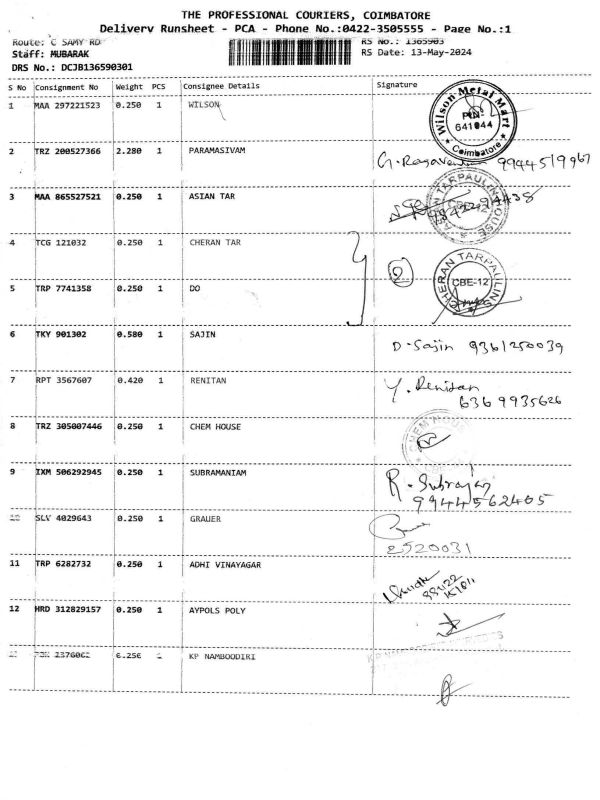 THE PROFESSIONAL COURIERS, COIMBATORE
Delivery Runsheet - PCA - Phone No.:0422-3505555 - Page No.:1
Route: C SAMY RD
RS No.: 1365903
Staff: MUBARAK
RS Date: 13-May-2024
DRS No.: DCJB136590301
S No Consignment No Weight PCS Consignee Details Signature
1 MAA 297221523 0.250 1 WILSON
Wilson Metal Mart
PIN-
641044
* Coimbatore *
2 TRZ 200527366 2.280 1 PARAMASIVAM
9944519967
3 MAA 865527521 0.250 1 ASIAN TAR
TARPAULIN HOUSE
CBE-12
4 TCG 121032 0.250 1 CHERAN TAR
2
5 TRP 7741358 0.250 1 DO
CHERAN TARPAULINS
CBE-12
6 TKY 901302 0.580 1 SAJIN
D-Sajin 9361250039
7 RPT 3567607 0.420 1 RENITAN
Y. Renitan
6369935626
8 TRZ 305007446 0.250 1 CHEM HOUSE
CHEM HOUSE
9 IXM 506292945 0.250 1 SUBRAMANIAM
R. Subrajan
9944562405
10 SLV 4029643 0.250 1 GRAUER
2520031
11 TRP 6282732 0.250 1 ADHI VINAYAGAR
12 HRD 312829157 0.250 1 AYPOLS POLY
KP NAMBOODIRI